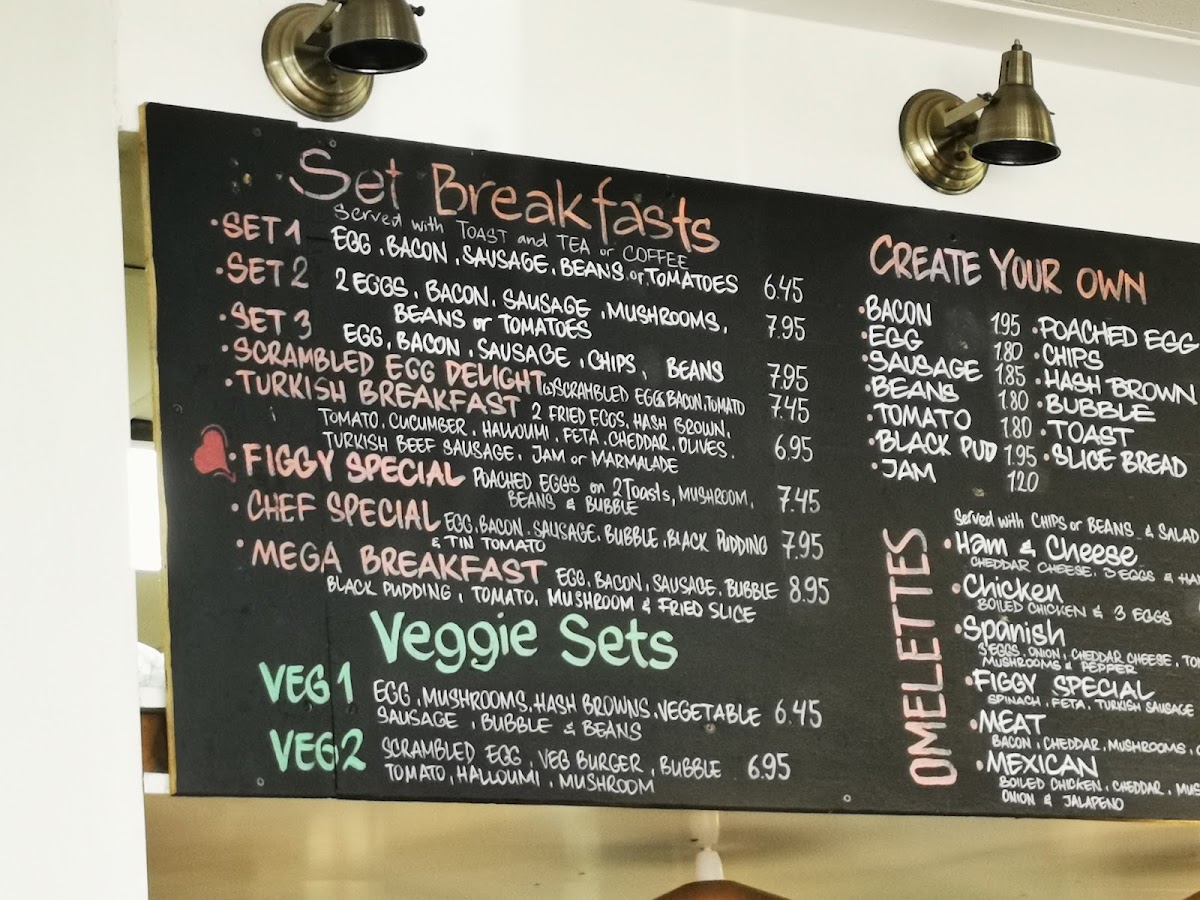 Set Breakfasts
Served with TOAST and TEA or COFFEE
• SET 1 EGG, BACON, SAUSAGE, BEANS or TOMATOES 6.45
• SET 2 2 EGGS, BACON, SAUSAGE, MUSHROOMS, 7.95
BEANS or TOMATOES
• SET 3 EGG, BACON, SAUSAGE, CHIPS, BEANS 7.95
• SCRAMBLED EGG DELIGHT SCRAMBLED EGG, BACON, TOMATO 7.45
• TURKISH BREAKFAST 2 FRIED EGGS, HASH BROWN, 6.95
TOMATO, CUCUMBER, HALLOUMI, FETA, CHEDDAR, OLIVES,
TURKISH BEEF SAUSAGE, JAM or MARMALADE
• FIGGY SPECIAL POACHED EGGS on 2 Toasts, MUSHROOM, 7.45
BEANS & BUBBLE
• CHEF SPECIAL EGG, BACON, SAUSAGE, BUBBLE, BLACK PUDDING 7.95
& TIN TOMATO
• MEGA BREAKFAST EGG, BACON, SAUSAGE, BUBBLE 8.95
BLACK PUDDING, TOMATO, MUSHROOM & FRIED SLICE
Veggie Sets
VEG 1 EGG, MUSHROOMS, HASH BROWNS, VEGETABLE 6.45
SAUSAGE, BUBBLE & BEANS
VEG 2 SCRAMBLED EGG, VEG BURGER, BUBBLE 6.95
TOMATO, HALLOUMI, MUSHROOM
CREATE YOUR OWN
• BACON 1.95
• EGG 1.80
• SAUSAGE 1.85
• BEANS 1.80
• TOMATO 1.80
• BLACK PUD 1.95
• JAM 1.20
• POACHED EGG
• CHIPS
• HASH BROWN
• BUBBLE
• TOAST
• SLICE BREAD
OMELETTES
Served with CHIPS or BEANS & SALAD
• Ham & Cheese
CHEDDAR CHEESE, 3 EGGS &
• Chicken
BOILED CHICKEN & 3 EGGS
• Spanish
3 EGGS, ONION, CHEDDAR CHEESE,
MUSHROOMS & PEPPER
• FIGGY SPECIAL
SPINACH, FETA, TURKISH SAUSAGE
• MEAT
BACON, CHEDDAR, MUSHROOMS,
• MEXICAN
BOILED CHICKEN, CHEDDAR,
ONION & JALAPENO